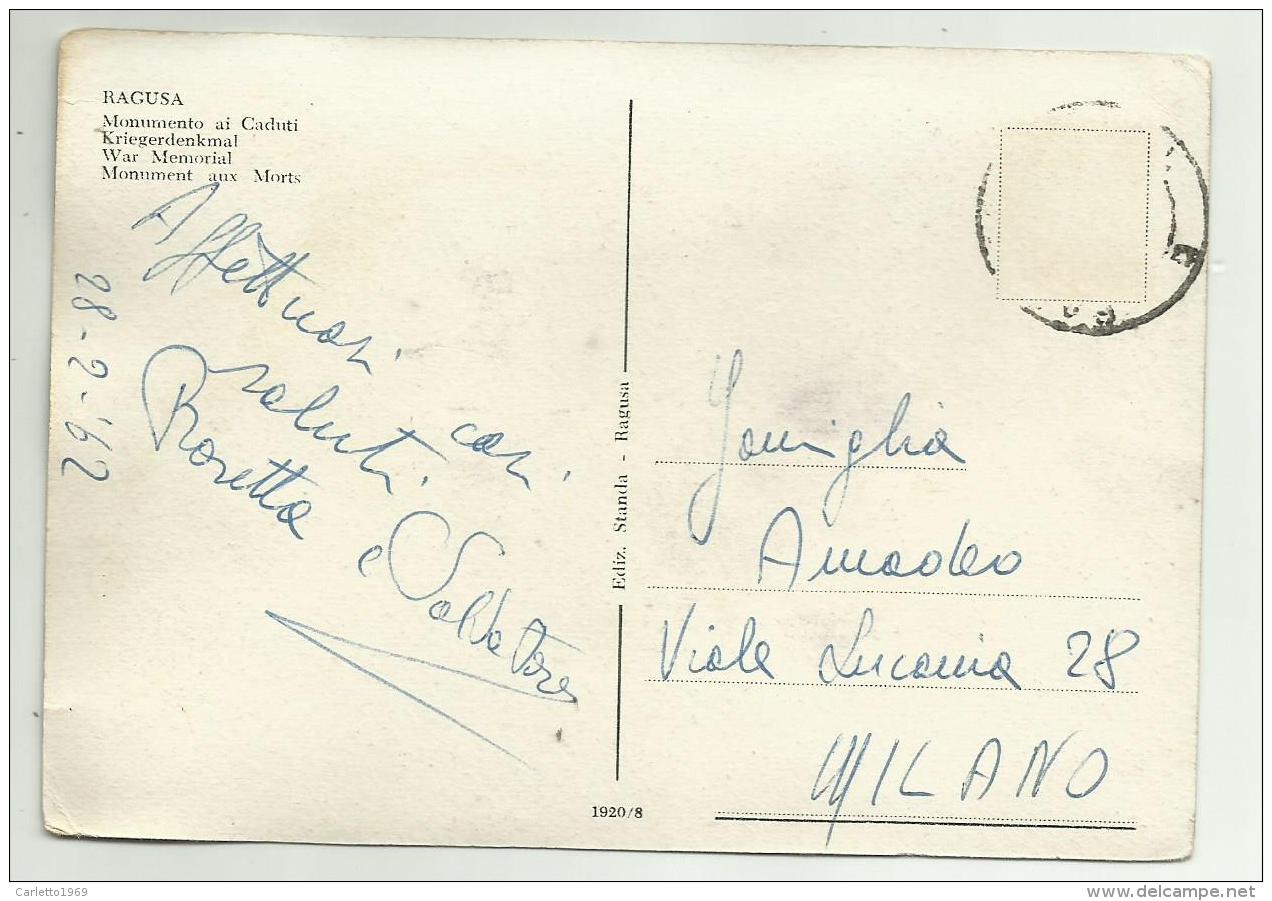 RAGUSA
Monumento ai Caduti
Kriegerdenkmal
War Memorial
Monument aux Morts
Affettuosi
saluti, cari.
Rosetta e Salvatore
28-2-'62
Ediz. Standa - Ragusa
1920/8
Famiglia
Amadeo
Viale Lucania 28
MILANO
Carletto1969
www.delcampe.net